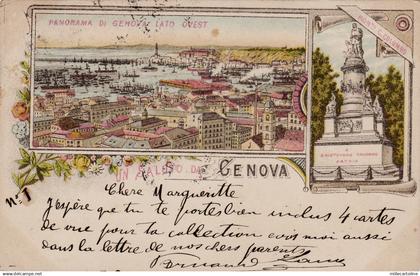 PANORAMA DI GENOVA LATO OVEST
A
CRISTOFORO COLOMBO
PATRIA
UN SALUTO DA GENOVA
N° 1
Chere Margueritte
J'espère que tu te portes bien inclus 4 cartes
de vue pour ta collection ecris moi aussi
dans la lettre de nos chers parents